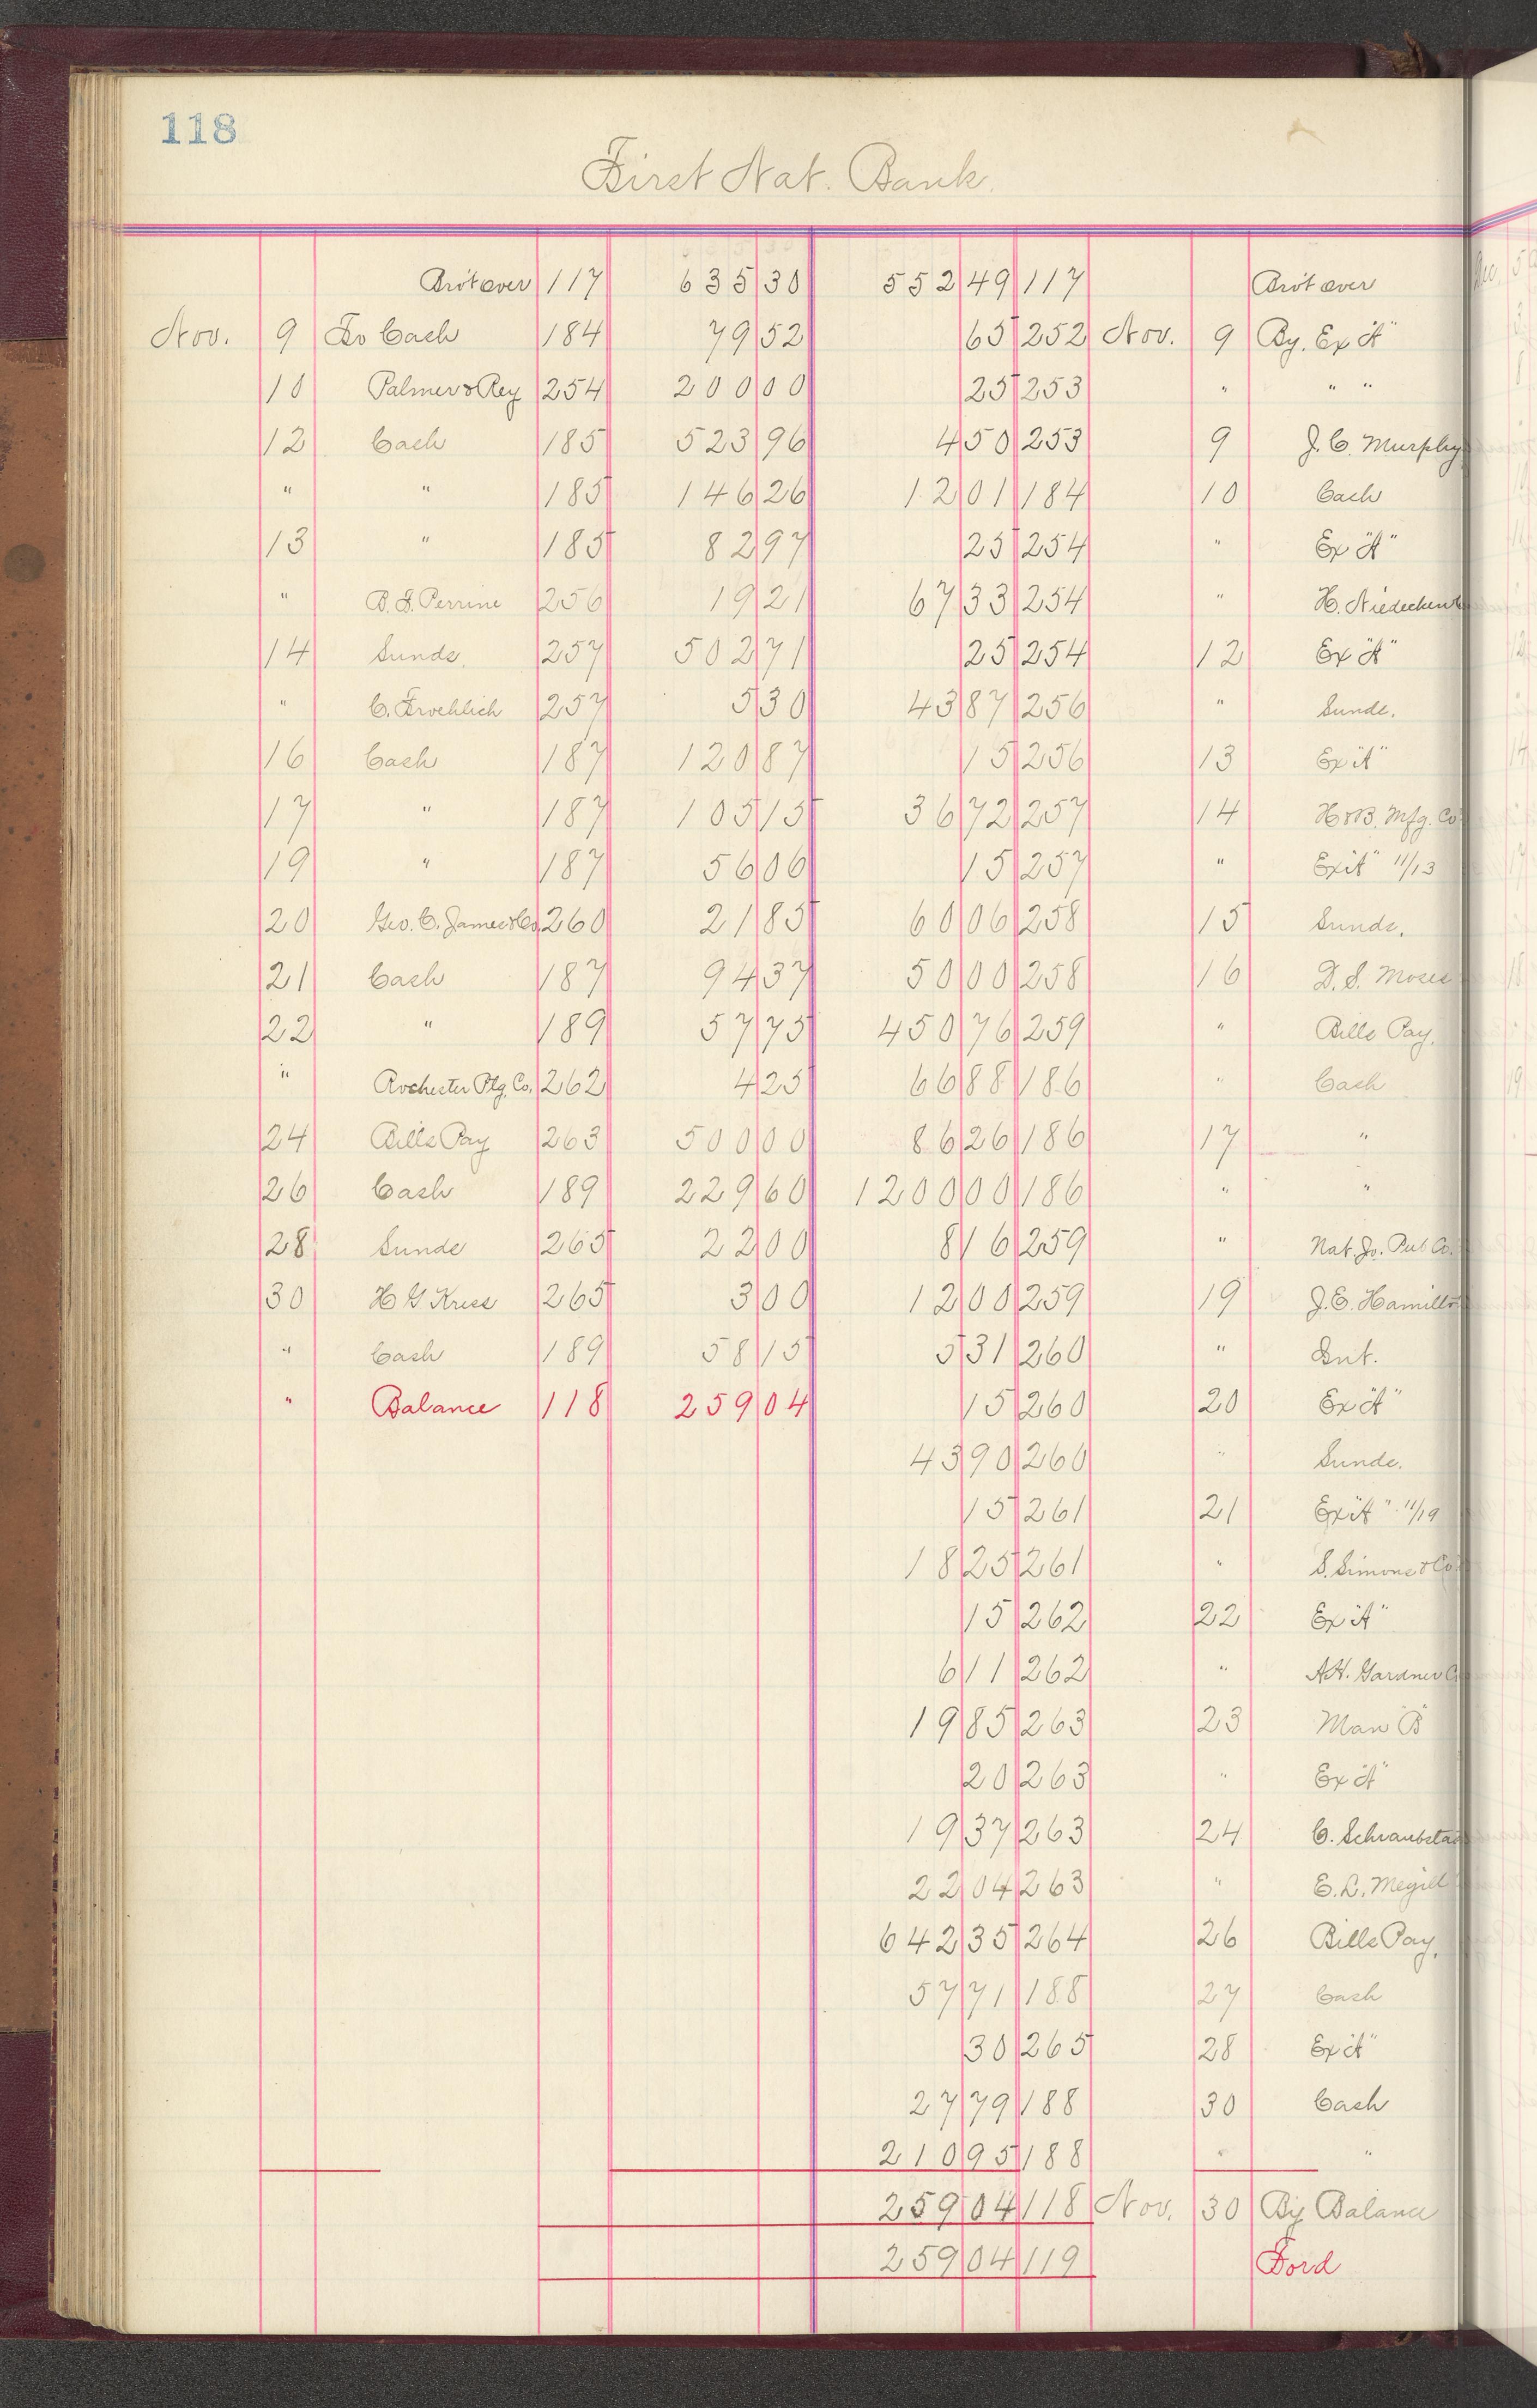 118
First Nat. Bank.
Brōt over 117 635 30 552 49 117 Brōt over
Nov. 9 To Cash 184 79 52 65 252 Nov. 9 By. Ex "A"
10 Palmer & Rey 254 200 00 25 253 " " "
12 Cash 185 523 96 4 50 253 9 J. C. Murphy
" " 185 146 26 12 01 184 10 Cash
13 " 185 82 97 25 254 " Ex "A"
" B. S. Perrine 256 19 21 67 33 254 " H.
14 Sunds. 257 502 71 25 254 12 Ex "A"
" C. Froehlich 257 5 30 43 87 256 " Sunds.
16 Cash 187 120 87 15 256 13 Ex "A"
17 " 187 105 15 36 72 257 14 H & B. Mfg. Co.
19 " 187 56 06 15 257 " Ex "A" 11/13
20 Geo. C. James & Co. 260 21 85 60 06 258 15 Sunds.
21 Cash 187 94 37 50 00 258 16 D. S. Moses
22 " 189 57 75 450 76 259 " Bills Pay.
" Rochester Ptg. Co. 262 4 25 66 88 186 " Cash
24 Bills Pay 263 500 00 86 26 186 17 "
26 Cash 189 229 60 1200 00 186 " "
28 Sunds 265 22 00 8 16 259 " Nat. Jo. Pub Co.
30 H G Kress 265 3 00 12 00 259 19 J. E. Hamilto
" Cash 189 58 15 5 31 260 " Int.
" Balance 118 259 04 15 260 20 Ex "A"
43 90 260 " Sunds.
15 261 21 Ex "A" 11/19
18 25 261 " S. Simons & Co.
15 262 22 Ex "A"
6 11 262 " A. H. Gardner
19 85 263 23 Man "B"
20 263 " Ex "A"
19 37 263 24 C. Schraubsta
22 04 263 " E. L. Megill
642 35 264 26 Bills Pay.
57 71 188 27 Cash
30 265 28 Ex "A"
27 79 188 30 Cash
210 95 188 " "
259 04 118 Nov. 30 By Balance
259 04 119 Ford